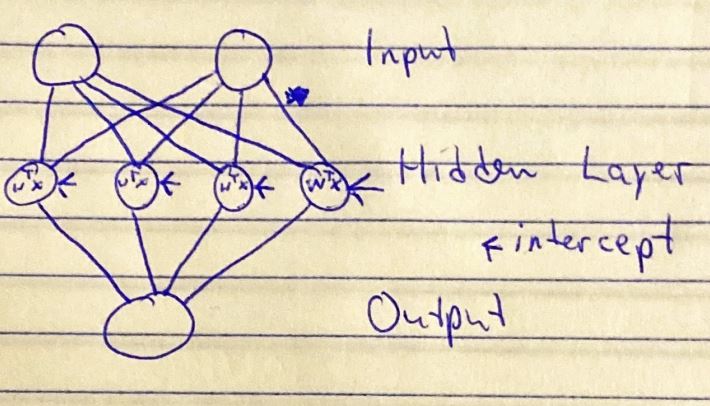 Input
wᵀx ← wᵀx ← wᵀx ← wᵀx ← Hidden Layer
← intercept
Output